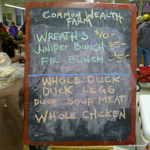 COMMON WEALTH
FARM
WREATHS $10-
JUNIPER BUNCH $5-
FIR BUNCH $5-
WHOLE DUCK
DUCK LEGS
DUCK SOUP MEAT
WHOLE CHICKEN